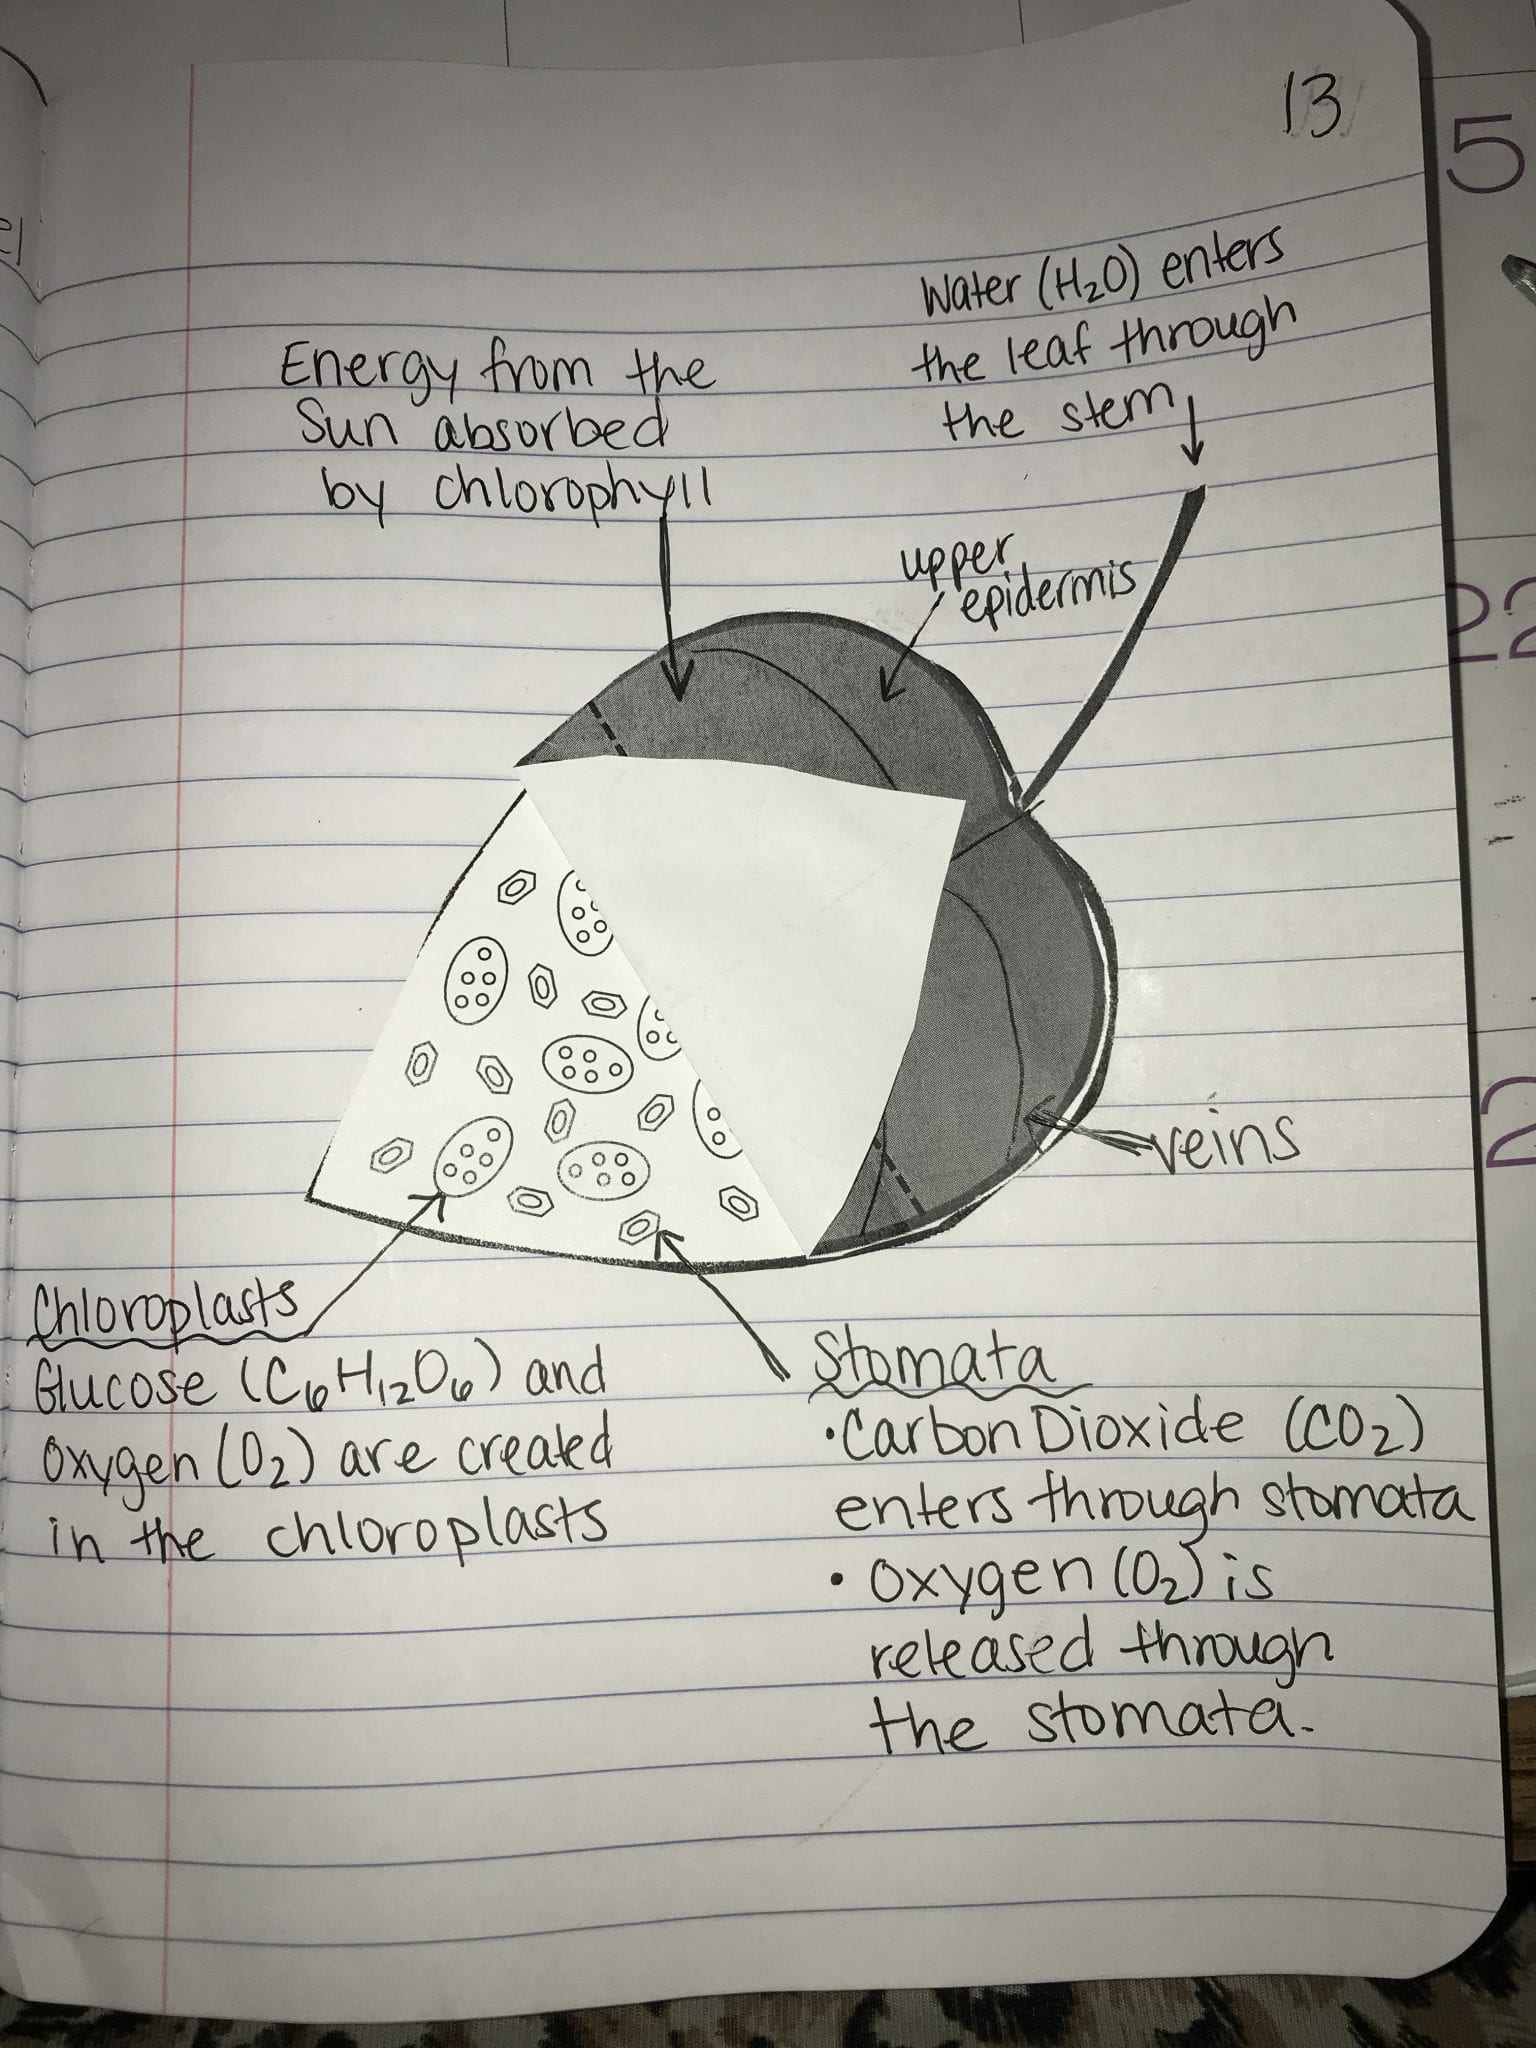 13
5
Water (H₂O) enters
the leaf through
the stem
Energy from the
Sun absorbed
by chlorophyll
upper
epidermis
22
2
veins
Chloroplasts
Glucose (C₆H₁₂O₆) and
Oxygen (O₂) are created
in the chloroplasts
Stomata
•Carbon Dioxide (CO₂)
enters through stomata
• Oxygen (O₂) is
released through
the stomata.